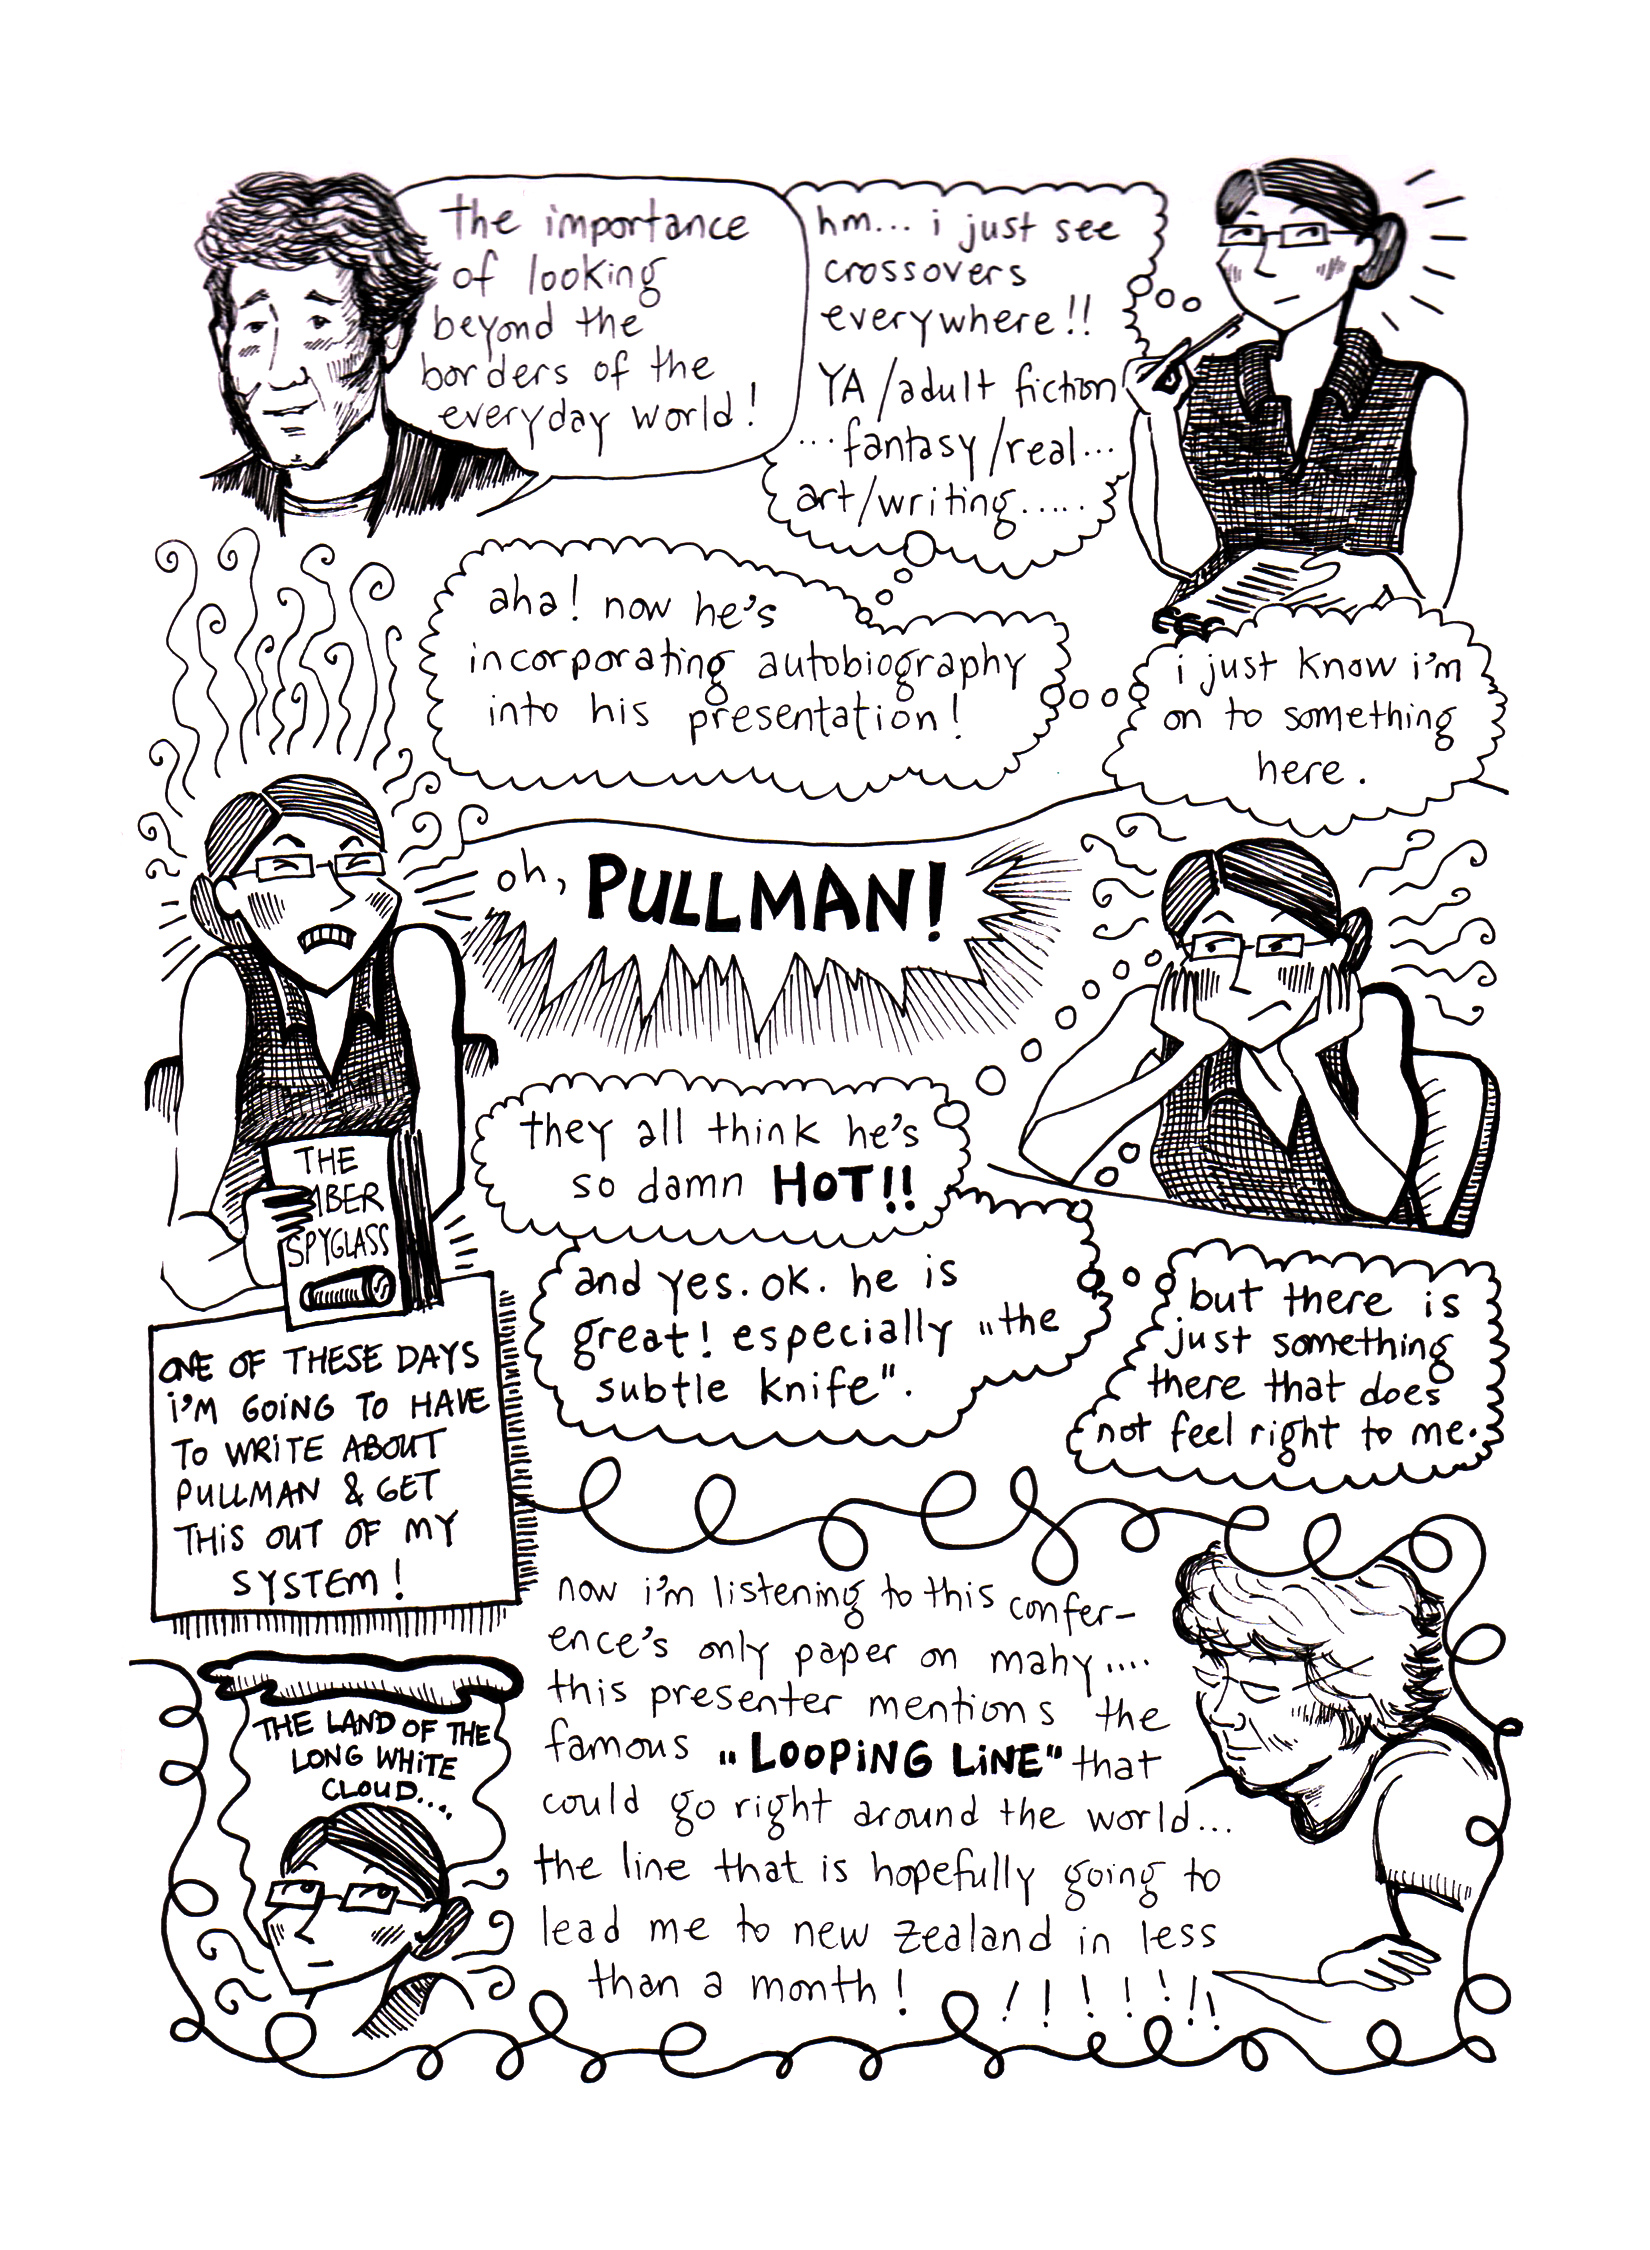 the importance
of looking
beyond the
borders of the
everyday world!
hm... i just see
crossovers
everywhere!!
YA/adult fiction
...fantasy/real...
art/writing.....
aha! now he's
incorporating autobiography
into his presentation!
i just know i'm
on to something
here.
oh, PULLMAN!
they all think he's
so damn HOT!!
and yes. ok. he is
great! especially "the
subtle knife".
but there is
just something
there that does
not feel right to me.
THE
MBER
SPYGLASS
ONE OF THESE DAYS
i'M GOING TO HAVE
TO WRITE ABOUT
PULLMAN & GET
THiS OUT OF MY
SYSTEM!
now i'm listening to this confer-
ence's only paper on mahy....
this presenter mentions the
famous "LOOPiNG LiNE" that
could go right around the world...
the line that is hopefully going to
lead me to new zealand in less
than a month! !!!!!!!
THE LAND OF THE
LONG WHiTE
CLOUD....